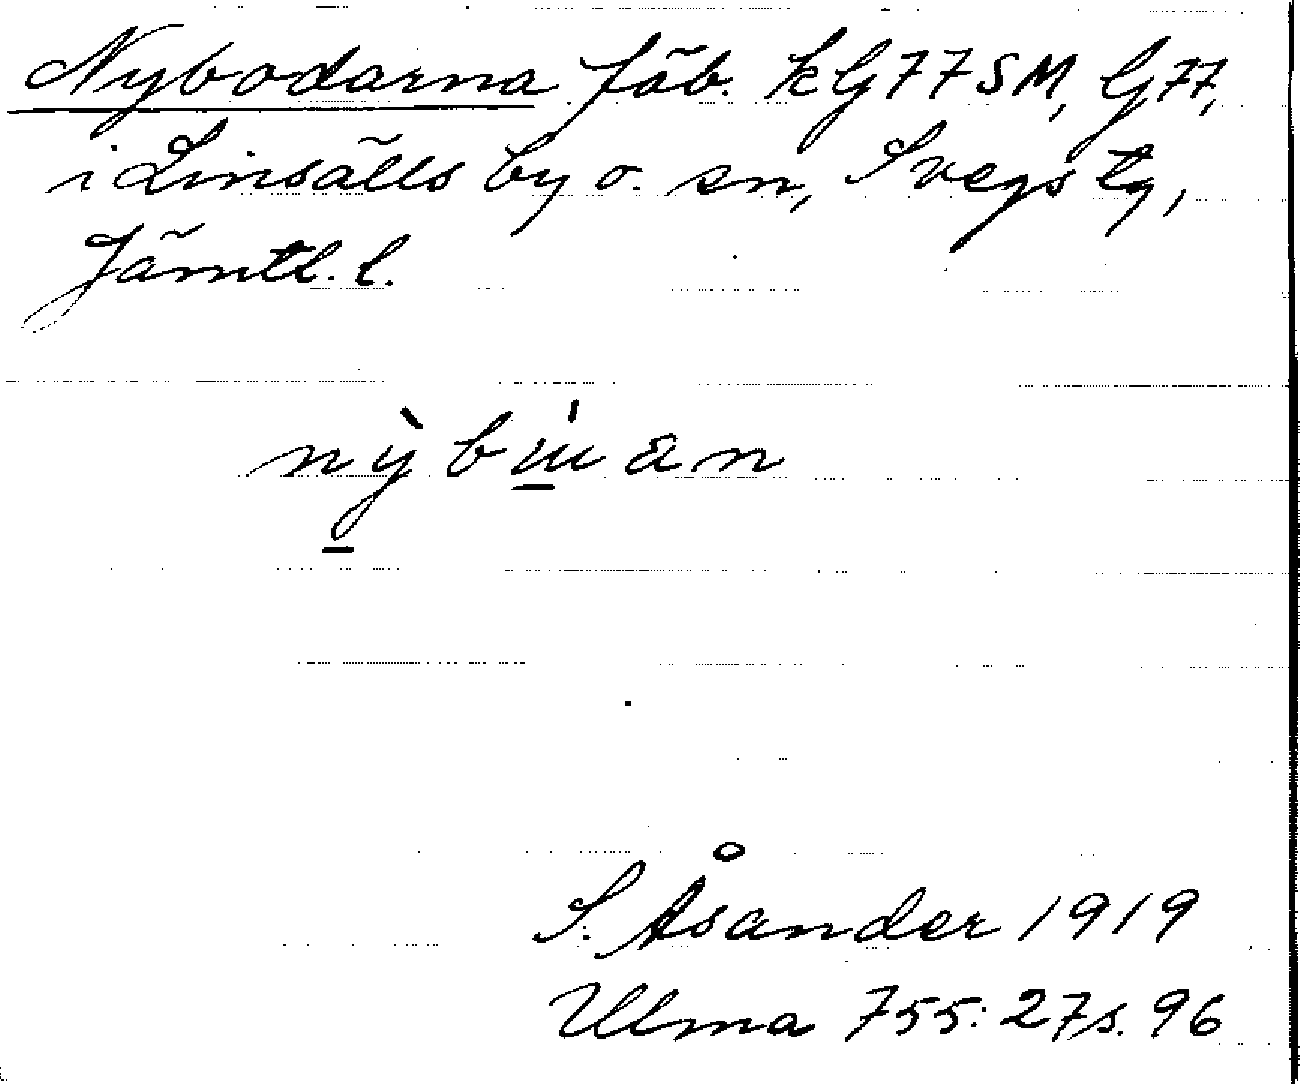 Nybodarna fäb. kG77SM, G77,
i Linsälls by o. sn, Svegs tg,
Jämtl. l.
S. Åsander 1919
Ulma 755:27 s. 96